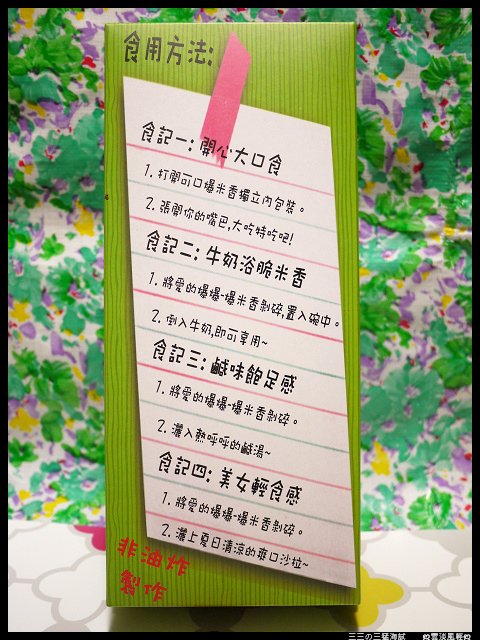 食用方法:
食記一: 開心大口食
1. 打開可口爆米香獨立內包裝。
2. 張開你的嘴巴,大吃特吃吧!
食記二: 牛奶浴脆米香
1. 將愛的爆爆-爆米香剝碎,置入碗中。
2. 倒入牛奶,即可享用~
食記三: 鹹味飽足感
1. 將愛的爆爆-爆米香剝碎。
2. 灑入熱呼呼的鹹湯~
食記四: 美女輕食感
1. 將愛的爆爆-爆米香剝碎。
2. 灑上夏日清涼的爽口沙拉~
非油炸
製作
三三の三猛海賊
雲淡風輕